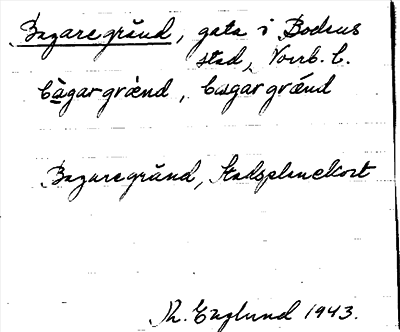 Bagaregränd, gata i Bodens
stad, Norrb. l.
bàgargrénd, bagargrǽnd
Bagaregränd, Stadsplanekort
Th. Englund 1943.